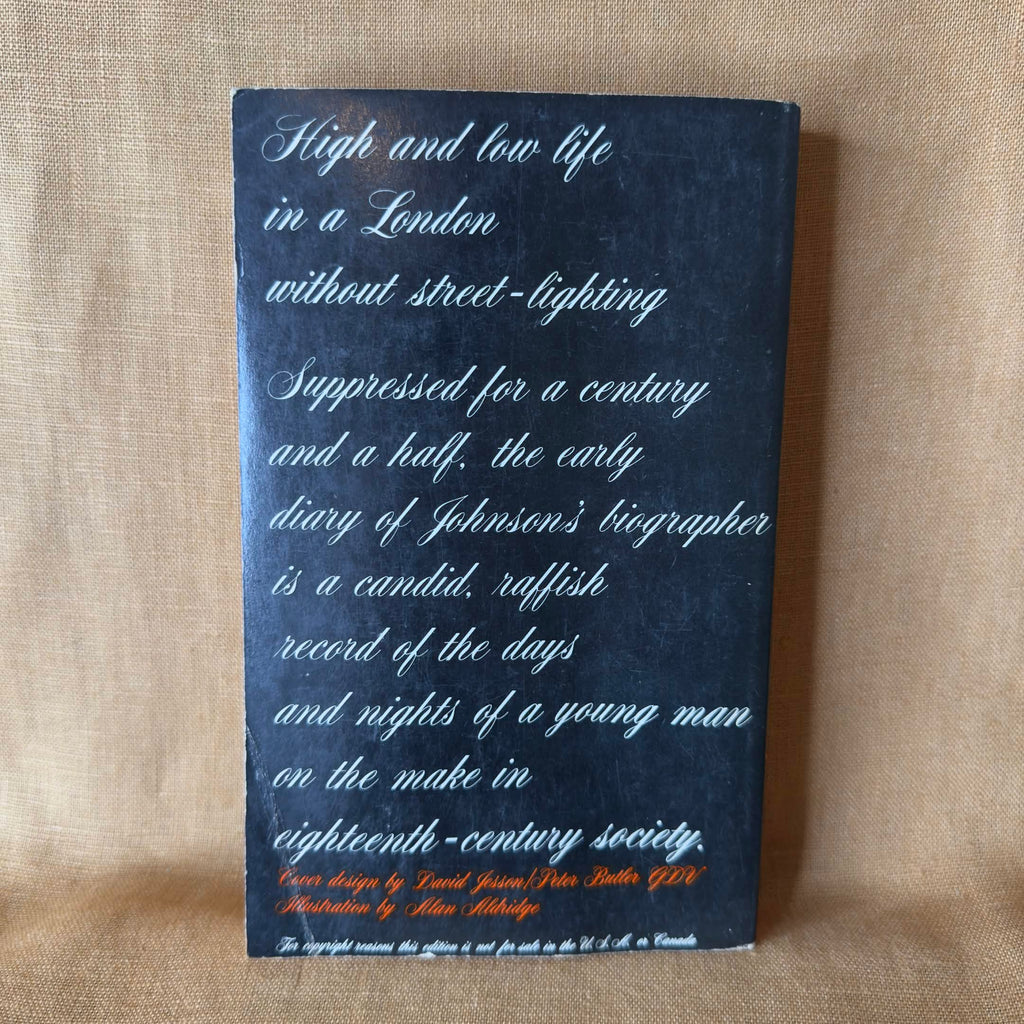 High and low life
in a London
without street-lighting
Suppressed for a century
and a half, the early
diary of Johnson's biographer
is a candid, raffish
record of the days
and nights of a young man
on the make in
eighteenth-century society.
Cover design by David Jesson/Peter Butler GDV
Illustration by Alan Aldridge
For copyright reasons this edition is not for sale in the U.S.A. or Canada